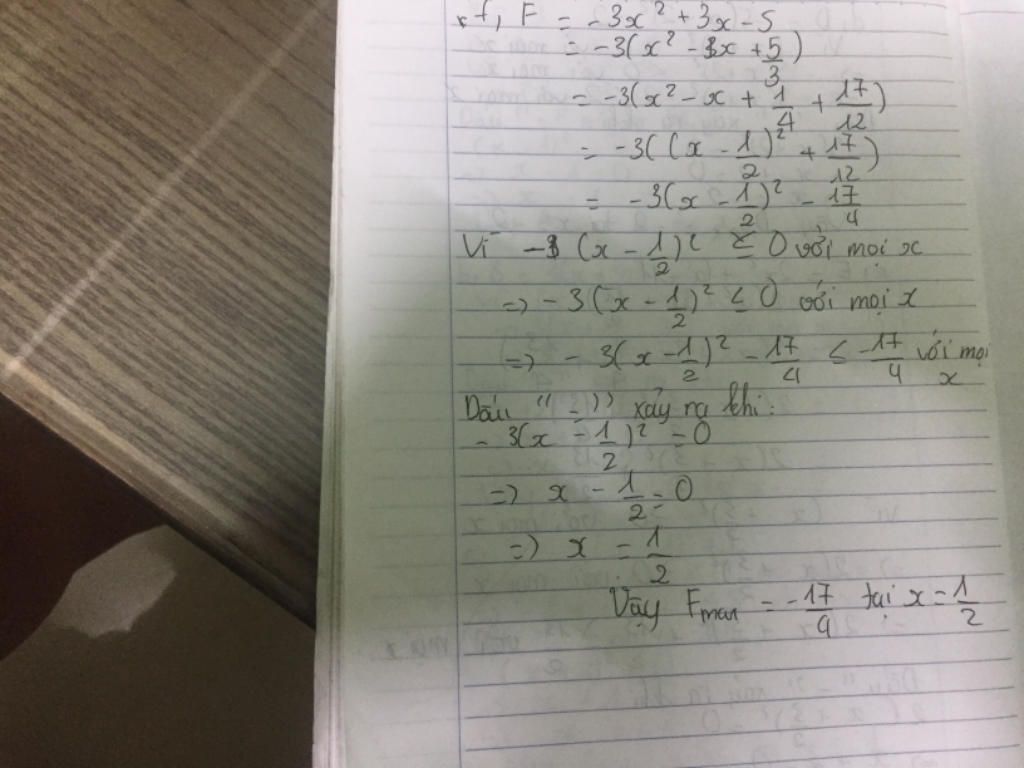 f, F = -3x² + 3x - 5
= -3(x² - x + 5/3)
= -3(x² - x + 1/4 + 17/12)
= -3((x - 1/2)² + 17/12)
= -3(x - 1/2)² - 17/4
Vì -3(x - 1/2)² ≤ 0 với mọi x
=> -3(x - 1/2)² ≤ 0 với mọi x
=> -3(x - 1/2)² - 17/4 ≤ -17/4 với mọi x
Dấu "=" xảy ra khi:
-3(x - 1/2)² = 0
=> x - 1/2 = 0
=> x = 1/2
Vậy Fmax = -17/4 tại x = 1/2